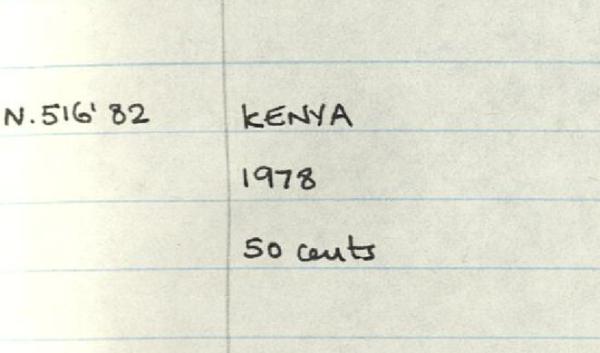 N.516'82 KENYA
1978
50 cents